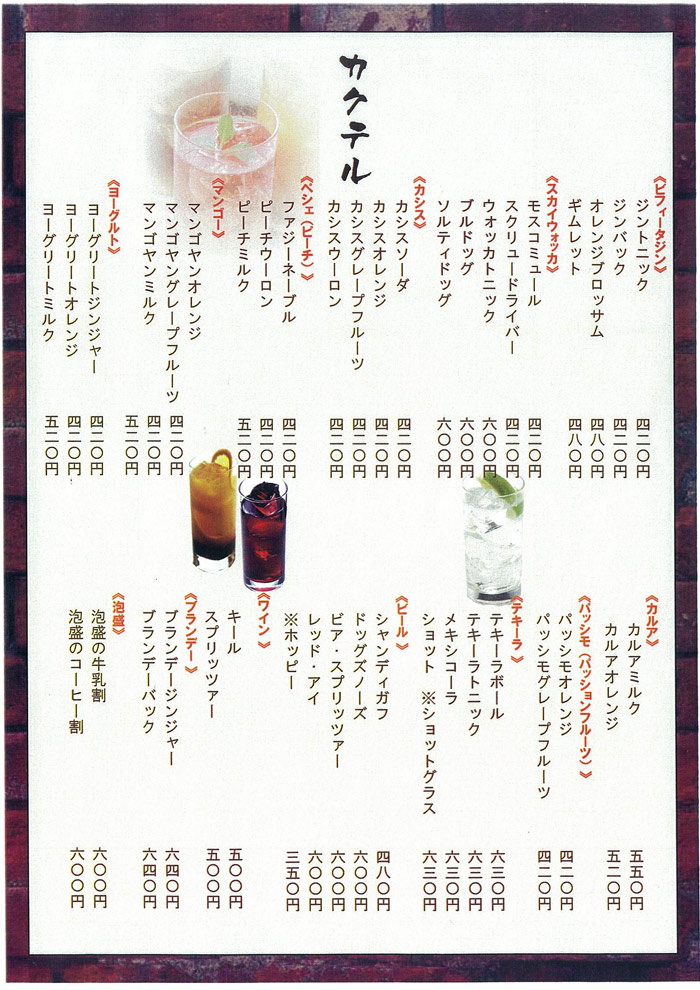 カクテル
《ビフィータジン》
ジントニック 四二〇円
ジンバック 四二〇円
オレンジブロッサム 四八〇円
ギムレット 四八〇円
《スカイウォッカ》
モスコミュール 四二〇円
スクリュードライバー 四二〇円
ウオッカトニック 六〇〇円
ブルドッグ 六〇〇円
ソルティドッグ 六〇〇円
《カシス》
カシスソーダ 四二〇円
カシスオレンジ 四二〇円
カシスグレープフルーツ 四二〇円
カシスウーロン 四二〇円
《ペシェ（ピーチ）》
ファジーネーブル 四二〇円
ピーチウーロン 四二〇円
ピーチミルク 五二〇円
《マンゴー》
マンゴヤンオレンジ 四二〇円
マンゴヤングレープフルーツ 四二〇円
マンゴヤンミルク 五二〇円
《ヨーグルト》
ヨーグリートジンジャー 四二〇円
ヨーグリートオレンジ 四二〇円
ヨーグリートミルク 五二〇円
《カルア》
カルアミルク 五五〇円
カルアオレンジ 五二〇円
《パッシモ（パッションフルーツ）》
パッシモオレンジ 四二〇円
パッシモグレープフルーツ 四二〇円
《テキーラ》
テキーラボール 六三〇円
テキーラトニック 六三〇円
メキシコーラ 六三〇円
ショット ※ショットグラス 六三〇円
《ビール》
シャンディガフ 四八〇円
ドッグズノーズ 六〇〇円
ビア・スプリッツァー 六〇〇円
レッド・アイ 六〇〇円
※ホッピー 三五〇円
《ワイン》
キール 五〇〇円
スプリッツァー 五〇〇円
《ブランデー》
ブランデージンジャー 六四〇円
ブランデーバック 六四〇円
《泡盛》
泡盛の牛乳割 六〇〇円
泡盛のコーヒー割 六〇〇円